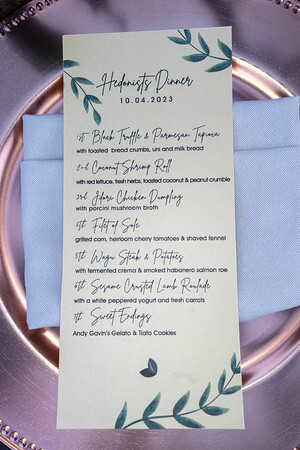 Hedonists Dinner
10.04.2023
1st Black Truffle & Parmesan Tapioca
with toasted bread crumbs, uni and milk bread
2nd Coconut Shrimp Roll
with red lettuce, fresh herbs, toasted coconut & peanut crumble
3rd Jidori Chicken Dumpling
with porcini mushroom broth
4th Filet of Sole
grilled corn, heirloom cherry tomatoes & shaved fennel
5th Wagu Steak & Potatoes
with fermented crema & smoked habanero salmon roe
6th Sesame Crusted Lamb Roulade
with a white peppered yogurt and fresh carrots
7th Sweet Endings
Andy Gavin's Gelato & Tiato Cookies